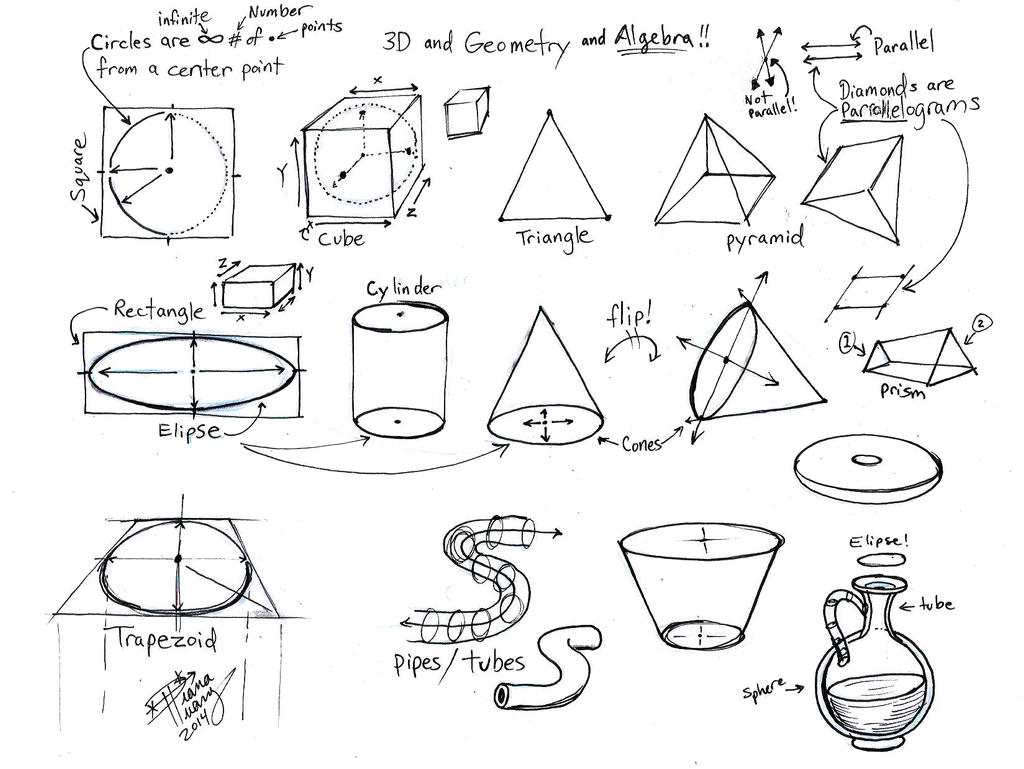 infinite
Number
Circles are ∞ # of • points
from a center point
3D and Geometry and Algebra!!
Not
parallel!
Parallel
Diamonds are
Parallelograms
Square
X
Y
Z
X
Cube
Triangle
pyramid
Z
Y
X
Rectangle
Elipse
Cylinder
flip!
Cones
1
2
prism
Trapezoid
pipes/tubes
Elipse!
tube
Sphere
2014